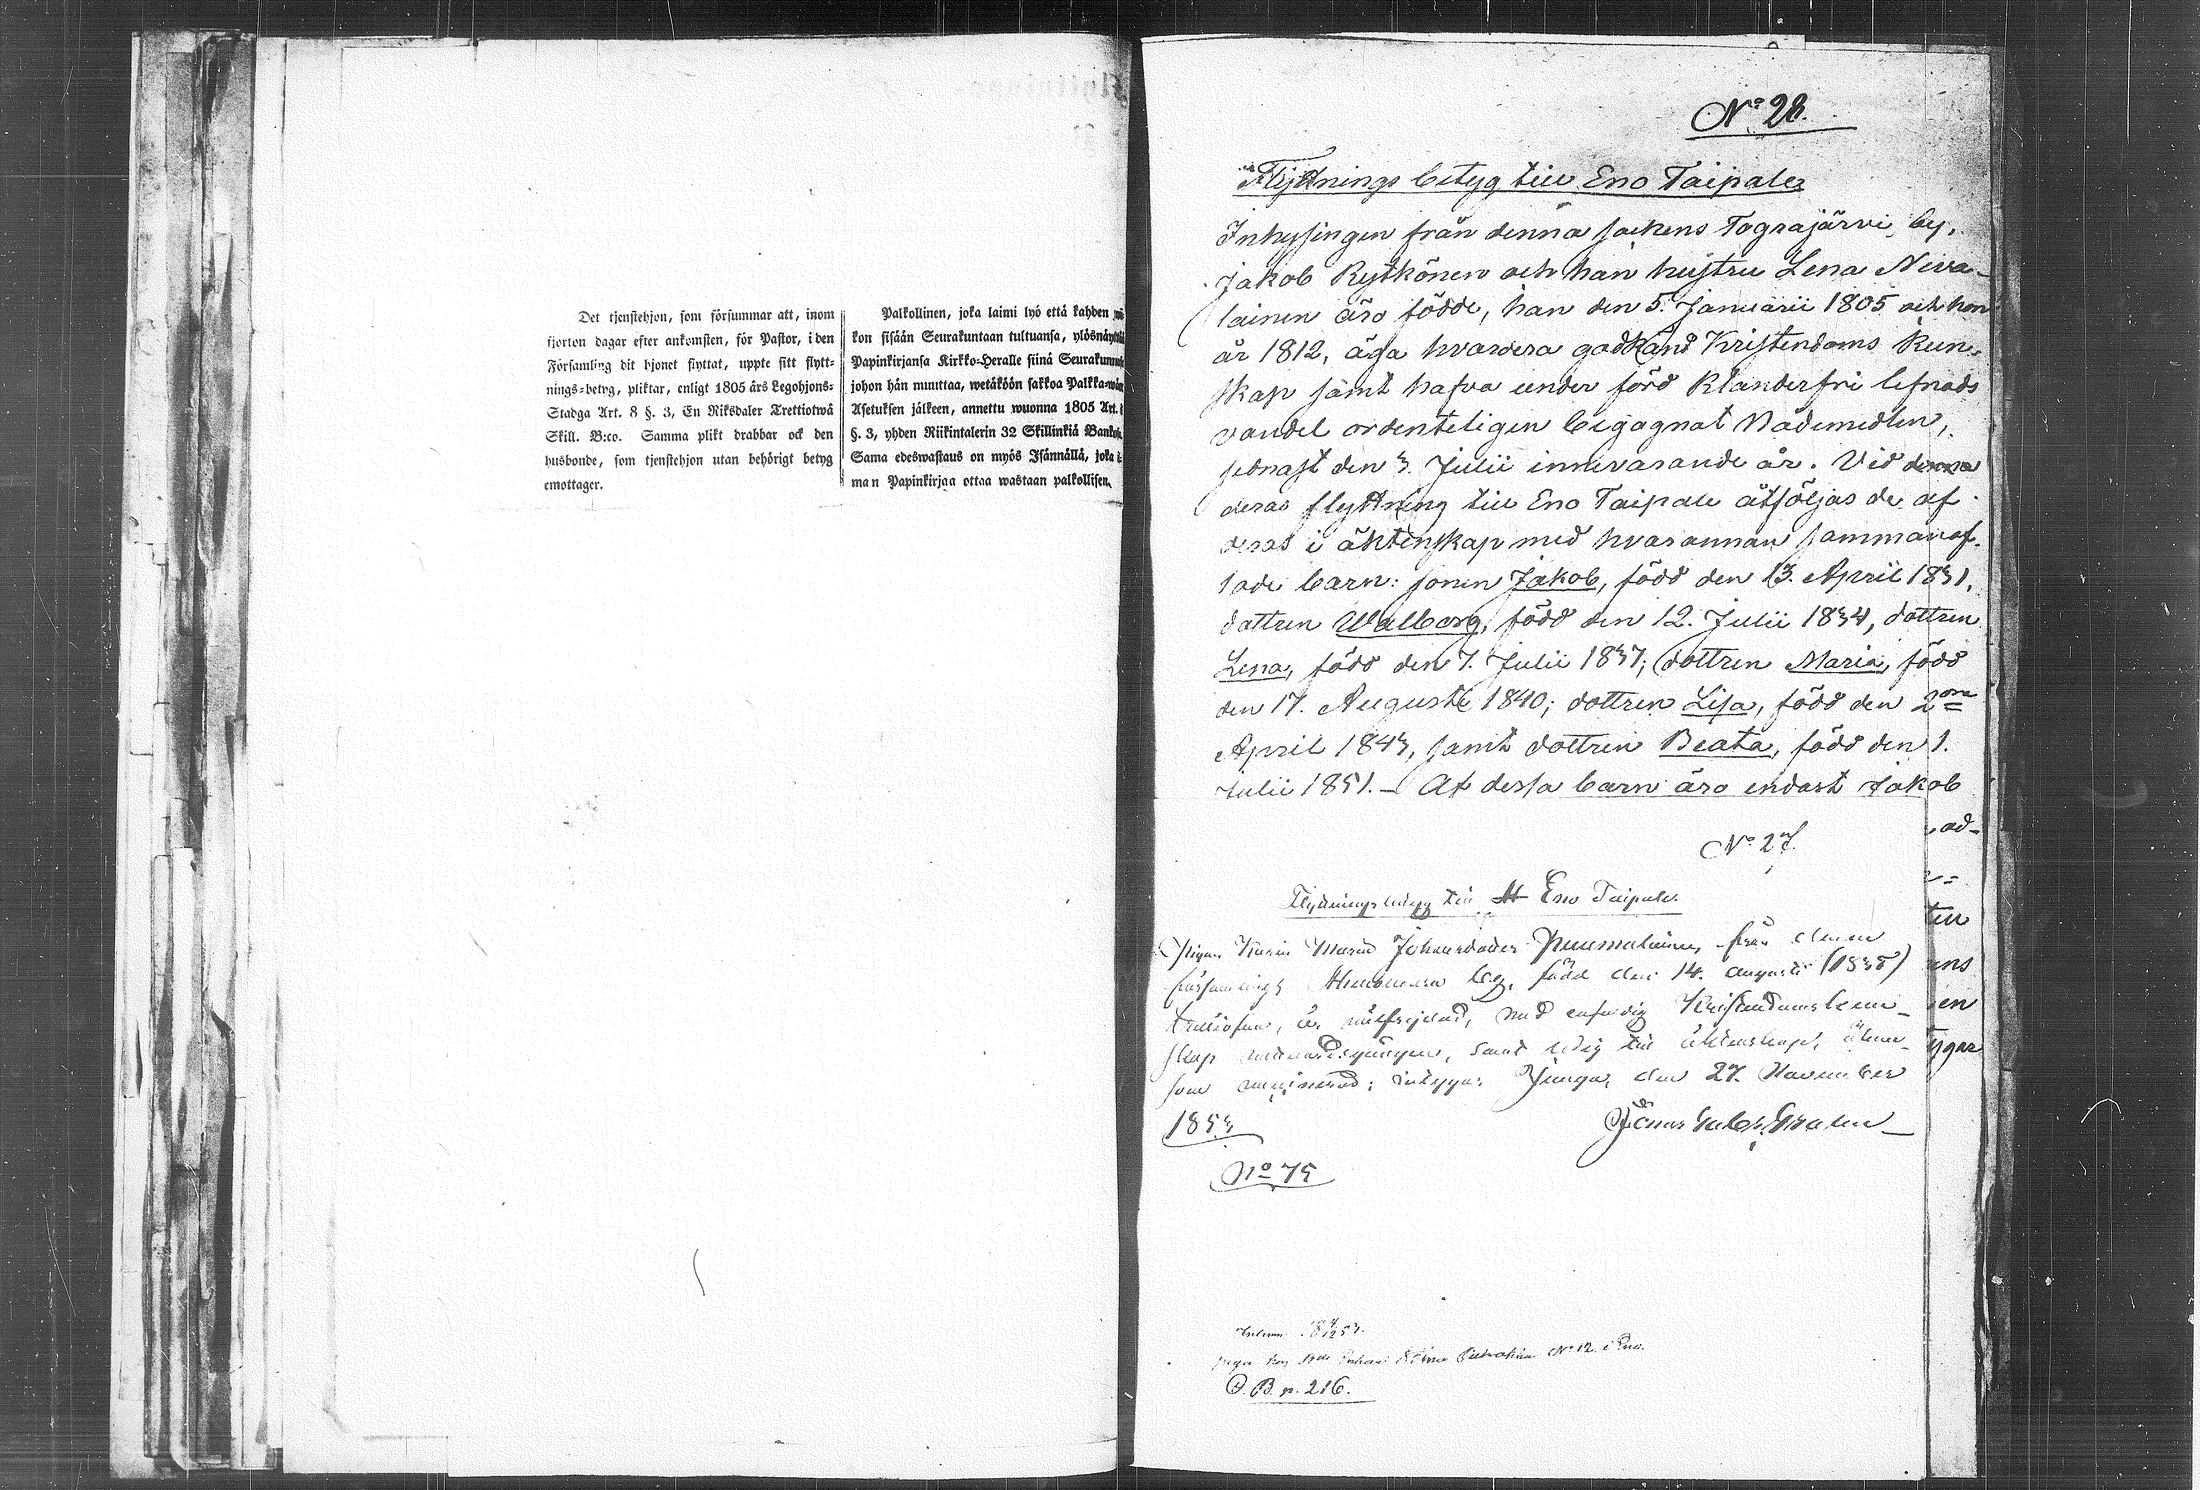 Det tjenstehjon, som försummar att, inom
fjorton dagar efter ankomsten, för Pastor, i den
Församling dit hjonet flyttat, uppte sitt flytt-
nings-betyg, pliktar, enligt 1805 års Legohjons-
Stadga Art. 8 §. 3, En Riksdaler Trettiotwå
Skill. B:co. Samma plikt drabbar ock den
husbonde, som tjenstehjon utan behörigt betyg
emottager.
Palkollinen, joka laimi lyö että kahden
kon sisään Seurakuntaan tultuansa, ylösnäyttää
Papinkirjansa Kirkko-Heralle siinä Seurakunnas
johon hän muuttaa, wetäköön sakkoa Palkka-wäen
Asetuksen jälkeen, annettu wuonna 1805 Art.
§. 3, yhden Riikintalerin 32 Skillinkiä Bankos.
Sama edeswastaus on myös Isännällä, joka i
man Papinkirjaa ottaa wastaan palkollisen.
No 28.
Flyttnings betyg till Eno Taipale
Inhysingen från denna sockens Tograjärvi by,
Jakob Rytkönen och han hustru Lena Neva-
lainen äro födde, han den 5. Januarii 1805 och hon
år 1812, äga hvardera godkänd Kristendoms Kun-
skap samt hafva under förd Klanderfri lefnads
vandel ordenteligen begagnat Nademedlen,
sednast den 3. Julii innevarande år. Vid denna
deras flyttning till Eno Taipale åtföljas de af
deras i äktenskap med hvarannan sammanaf-
lade barn: sonen Jakob, född den 13. April 1831,
dottren Walborg, född den 12. Julii 1834, dottren
Lena, född den 7. Julii 1837; dottren Maria, född
den 17. Augusti 1840; dottren Lisa, född den 2
April 1843, samt dottren Beata, född den 1.
Julii 1851. – Af dessa barn äro endast Jakob
No 27.
Flyttningsbetyg till Eno Taipale.
Pigan Maria Johansdotter Puumalainen, från denna
församlings by, född den 14. Augusti (1838)
är med Kristendoms kun-
skap samt ledig till äktenskap,
som intygar Junga, den 27. November
1853
No 75
No 12 i Eno.
C. B. p. 216.
ten
ens
ien
tygar